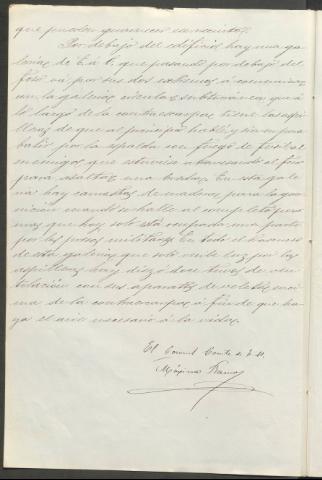 que pueden guarecerse cincuenta.
Por debajo del edificio hay una ga-
leria de E á E, que pasando por debajo del
foso vá por sus dos extremos á comunicar
con la galeria circular subterránea que á
lo largo de la contraescarpa tiene las aspi-
lleras de que al principio hablé y sirven para
batir por la espalda con fuego de fusil al
enemigo que estuviera atravesando el foso
para asaltar una brecha. En esta gale-
ria hay camastros de madera para la guar-
nicion cuando se halle al completo pero
mas que hoy solo está ocupada una parte
por los presos militares. En todo el trasver
de esta galeria que solo recibe luz por las
aspilleras hay diez ó doce tubos de ven-
tilacion con sus aparatos de veleta, enci-
ma de la contraescarpa, á fin de que ha-
ya el aire necesario á la vida.
El Coronel Comte de E. M.
Máximo Ramos